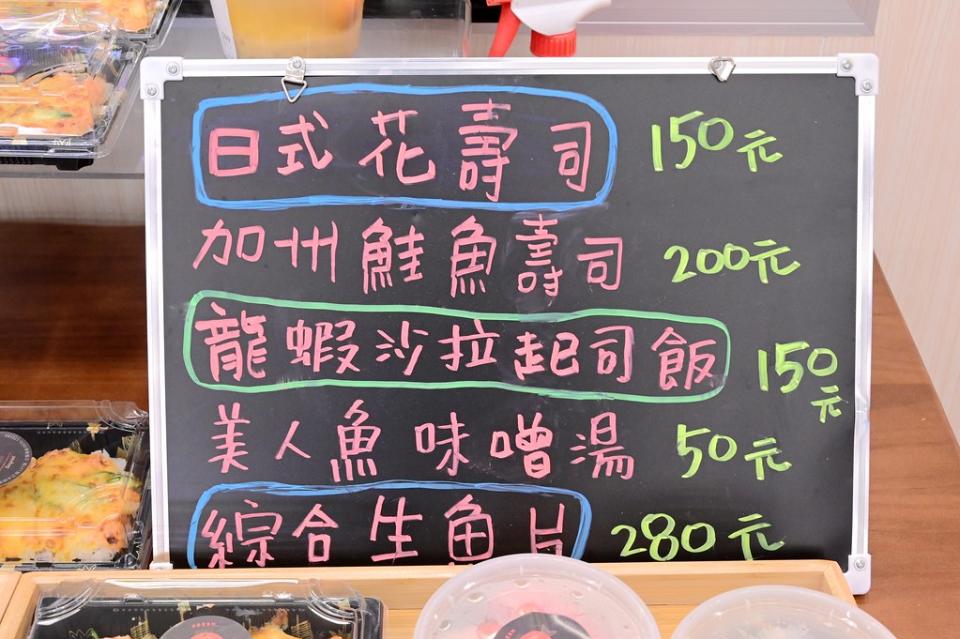 日式花壽司 150元
加州鮭魚壽司 200元
龍蝦沙拉起司飯 150元
美人魚味噌湯 50元
綜合生魚片 280元